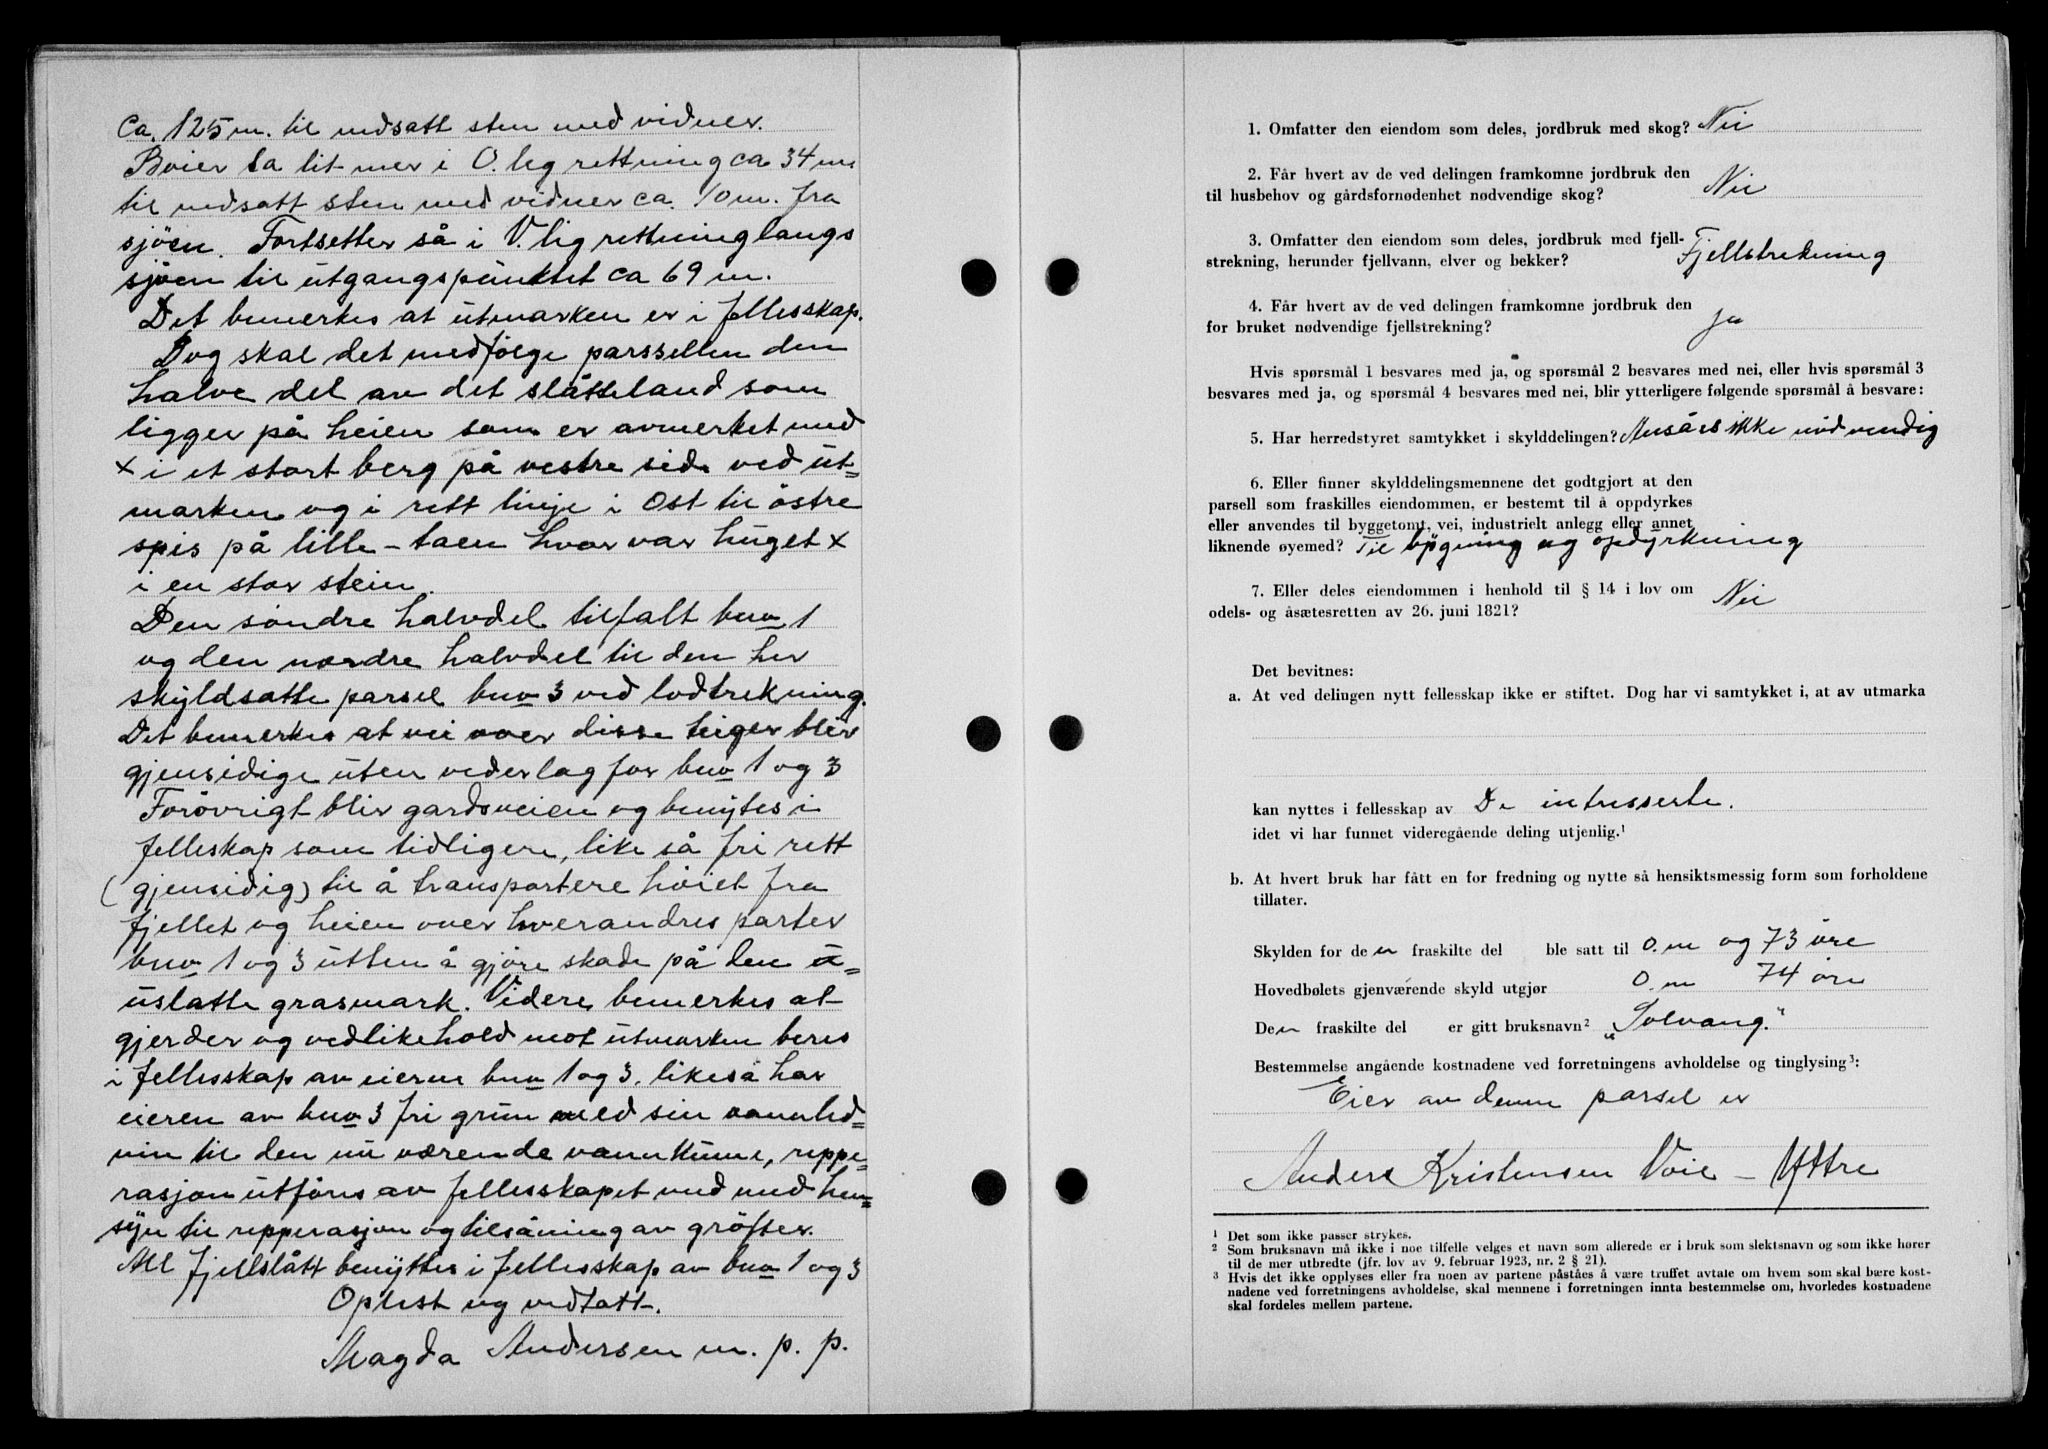 Ca. 125 m. til nedsatt sten med vidner.
Bøier så lit mer i O. lig rettning ca 34 m.
til nedsatt sten med vidner ca. 10 m. fra
sjöen. Fortsetter så i V. lig rettning langs
sjöen til utgangspunktet ca 69 m.
Det bemerkes at utmarken er i fellesskap.
Dog skal det medfölge parssellen den
halve del av det slåtteland som
ligger på heien som er avmerket med
x i et stort berg på vestre side ved ut=
marken og i rett linje i Ost til östre
spis på lille-taen hvor var huget x
i en stor stein.
Den söndre halvdel tilfalt bno 1
og den nordre halvdel til den her
skyldsatte parsel bno 3 ved lodtrekning.
Det bemerkes at vei over disse teiger blir
gjensidige uten vederlag for bno 1 og 3
Forövrigt blir gardsveien og benytes i
felleskap som tidligere, like så fri rett
(gjensidig) til å transportere höiet fra
fjellet og heien over hverandres parter
bno 1 og 3 utten å gjöre skade på den u=
uslatte grasmark. Videre bemerkes at
gjerder og vedlikehold mot utmarken beres
i fellesskap av eierne bno 1 og 3, likeså har
eieren av bno 3 fri grun med sin vannled
nin til den nu værende vannkumme, reppe=
rasjon utföres av fellesskapet med med hen=
syn til repperasjon og tilsåning av gröfter.
All fjellslått benyttes i fellesskap av bno 1 og 3
Oplest og vedtatt.
Magda Andersen m. p. p.
1. Omfatter den eiendom som deles, jordbruk med skog? Nei
2. Får hvert av de ved delingen framkomne jordbruk den
til husbehov og gårdsfornødenhet nødvendige skog? Nei
3. Omfatter den eiendom som deles, jordbruk med fjell-
strekning, herunder fjellvann, elver og bekker? Fjellstrekning
4. Får hvert av de ved delingen framkomne jordbruk den
for bruket nødvendige fjellstrekning? Ja
Hvis spørsmål 1 besvares med ja, og spørsmål 2 besvares med nei, eller hvis spørsmål 3
besvares med ja, og spørsmål 4 besvares med nei, blir ytterligere følgende spørsmål å besvare:
5. Har herredstyret samtykket i skylddelingen? Ansåes ikke nödvendig
6. Eller finner skylddelingsmennene det godtgjort at den
parsell som fraskilles eiendommen, er bestemt til å oppdyrkes
eller anvendes til byggetomt, vei, industrielt anlegg eller annet
liknende øyemed? Til bygning og opdyrkning
7. Eller deles eiendommen i henhold til § 14 i lov om
odels- og åsætesretten av 26. juni 1821? Nei
Det bevitnes:
a. At ved delingen nytt fellesskap ikke er stiftet. Dog har vi samtykket i, at av utmarka
kan nyttes i fellesskap av De intresserte.
idet vi har funnet videregående deling utjenlig.¹
b. At hvert bruk har fått en for fredning og nytte så hensiktsmessig form som forholdene
tillater.
Skylden for den fraskilte del ble satt til 0. m og 73 öre
Hovedbølets gjenværende skyld utgjør 0. m 74 öre
Den fraskilte del er gitt bruksnavn² „Solvang."
Bestemmelse angående kostnadene ved forretningens avholdelse og tinglysing³:
Eier av denne parsel er
Anders Kristensen Voie - Yttre
¹ Det som ikke passer strykes.
² Som bruksnavn må ikke i noe tilfelle velges et navn som allerede er i bruk som slektsnavn og som ikke hører
til de mer utbredte (jfr. lov av 9. februar 1923, nr. 2 § 21).
³ Hvis det ikke opplyses eller fra noen av partene påståes å være truffet avtale om hvem som skal bære kost-
nadene ved forretningens avholdelse, skal mennene i forretningen innta bestemmelse om, hvorledes kostnadene
skal fordeles mellem partene.